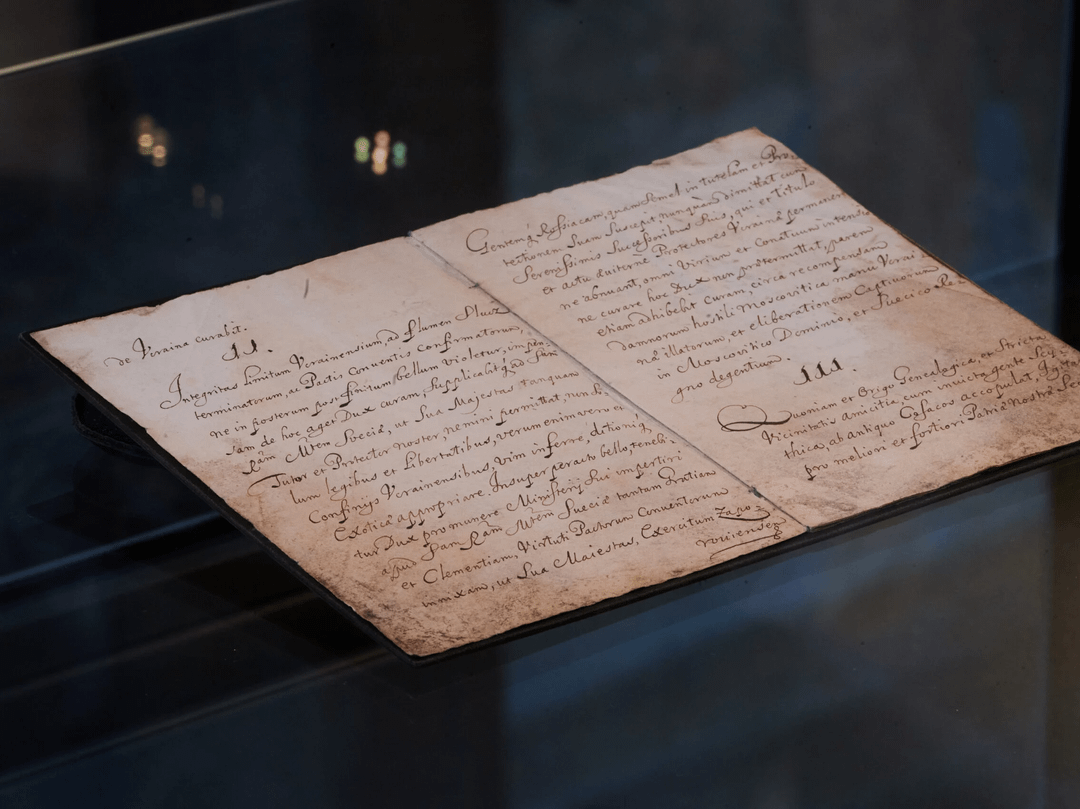 de Vcraina curabit.
II.
Integritas limitum Vcrainensium, ad flumen Slucz
terminatorum, ac Pactis Conventis Confirmatorum,
ne in posterum post finitum bellum violetur,
ram de hoc aget Dux curam, Supplicabit
Rām Mtem Sveciæ, ut Sua Majestas tanquam
Tutor et Protector noster, nemini permittat,
lum legibus et Libertatibus, verum enim vero et
Confinys Vcrainensibus, vim inferre, ditioniq
Exoticæ appropriare. Insuper peracto bello, tenebi-
tur Dux pro munere Ministerij sui impertiri
apud Rām Mtem Sveciæ tantam Gratiam
et Clementiam, Virtuti Pactorum Conventorum
innixam, ut Sua Maiestas, Exercitum Zapo-
roviensem
Gentemq Rossiacam, quam semel in tutelam et Pro-
tectionem Suam Suscepit, nunquam dimittat cum
Serenissimis Sucessoribus Suis, qui et titulo
et actu diuternè Protectores Vcrainæ permanere
ne abnuant, omni Virium et Conatuum intensio
ne curare hoc Dux non prætermittat, parem
etiam adhibebit Curam, circa recompensam
damnorum hostili Moscovitica manu Vcrai
næ illatorum, et eliberationem Captivorum
in Moscovitico Dominio, et Suecico Re-
gno degentium.
III.
Quoniam et Origo Genealogica, et Stricta
Vicinitatis amicitia cum invicta gente
thica, ab antiquo Cosacos accopulat,
pro meliori et fortiori Patriæ Nostræ